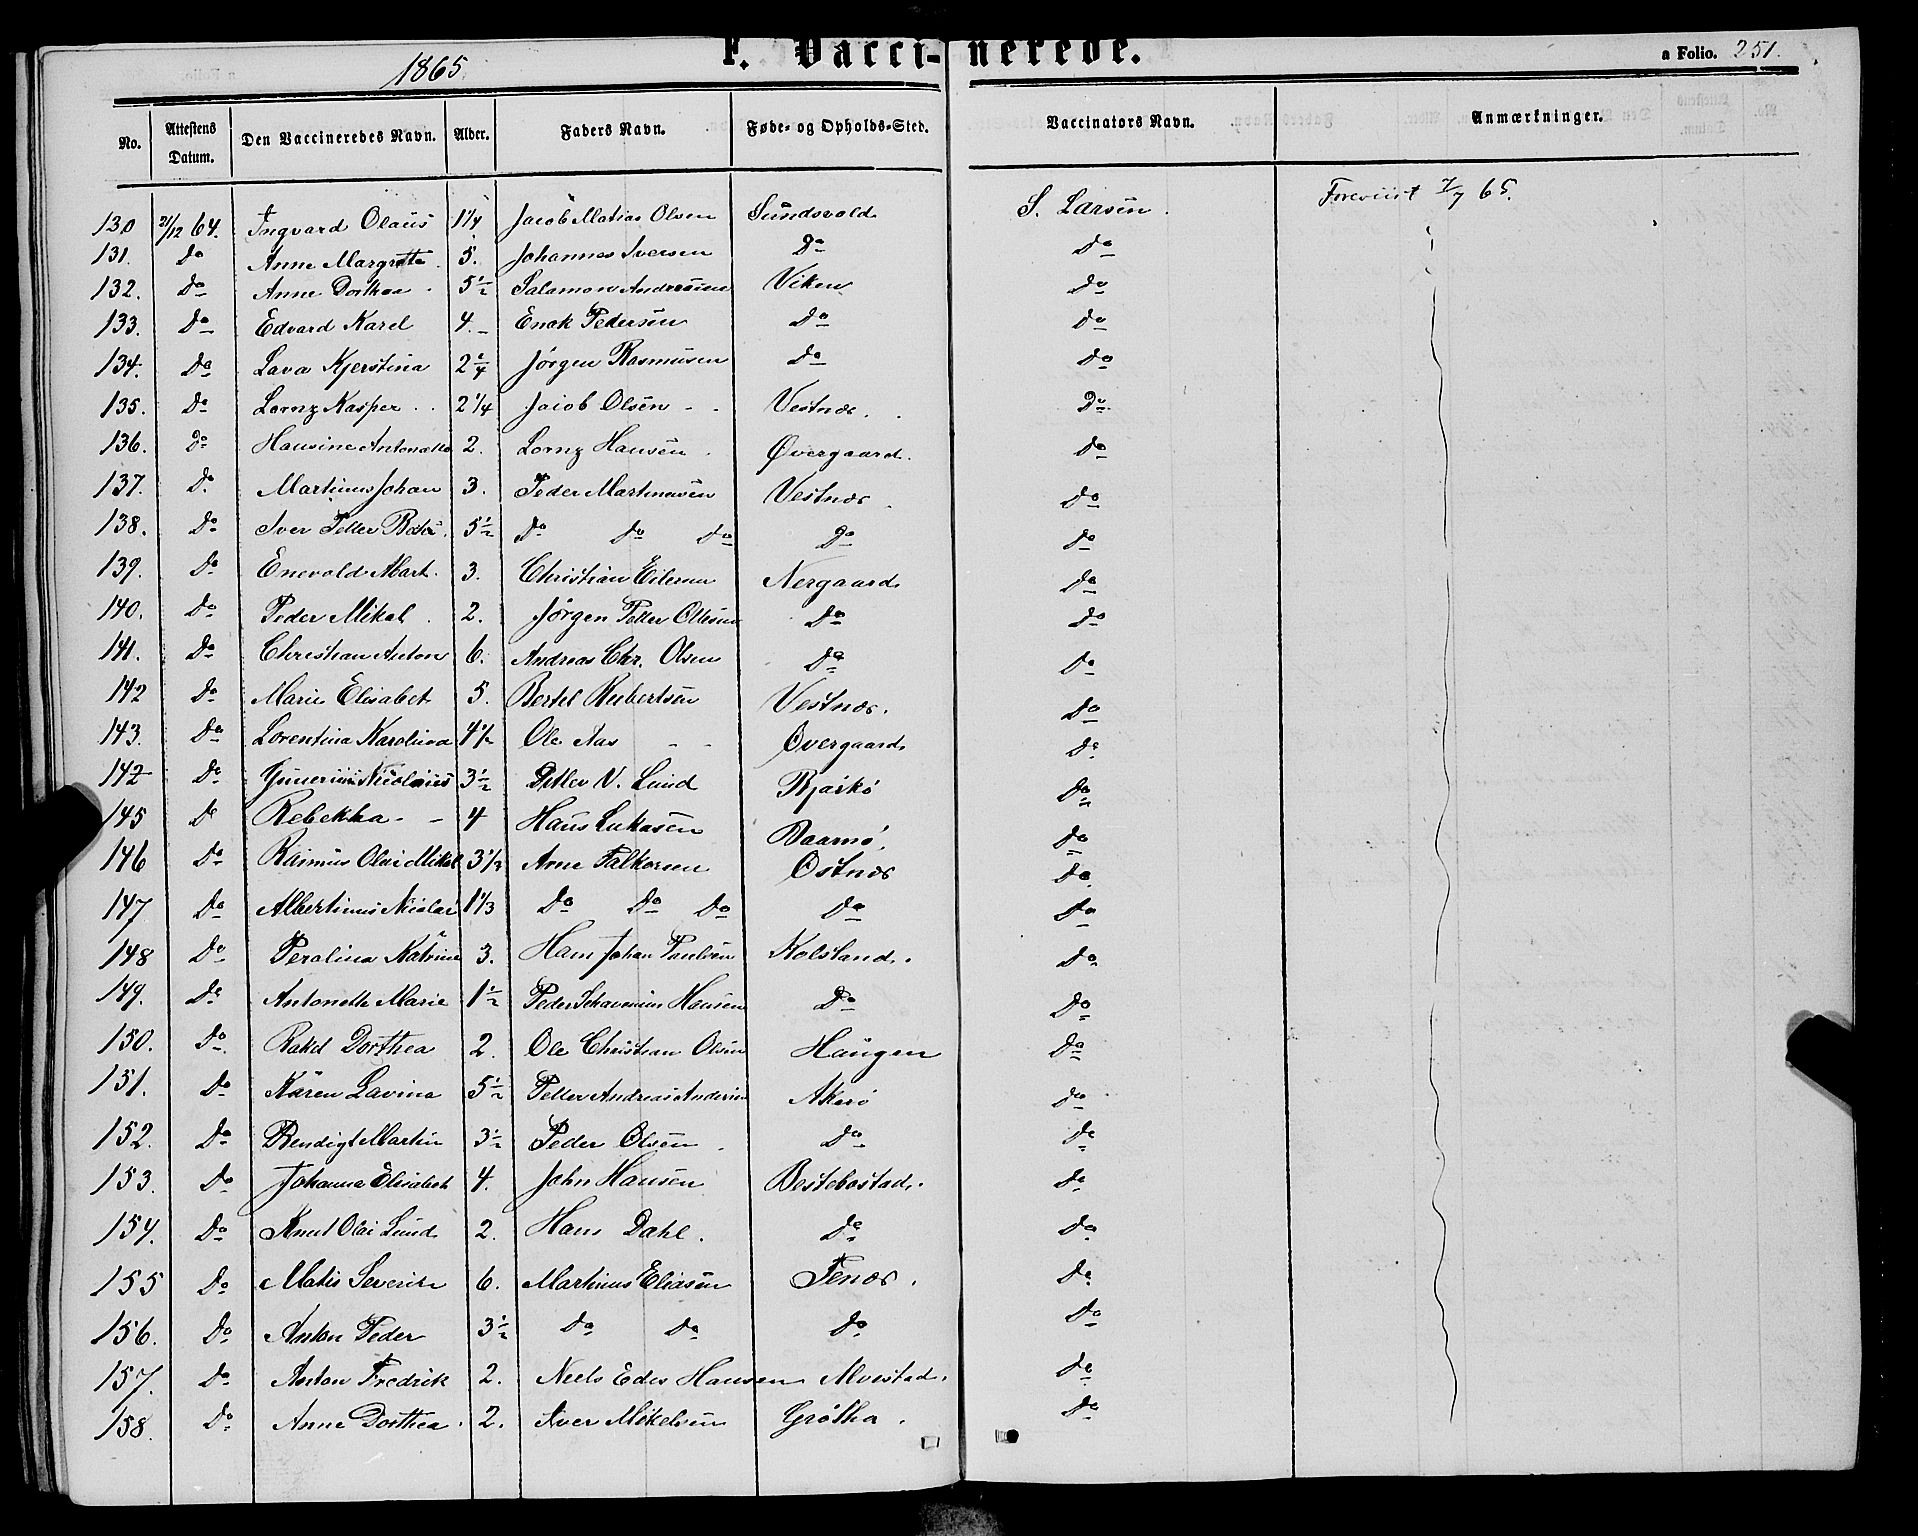 1865
F. Vaccinerede.
a Folio. 251.
No. | Attestens Datum. | Den Vaccineredes Navn. | Alder. | Faders Navn. | Føde- og Opholds-Sted. | Vaccinators Navn. | Anmærkninger.
130 | 21/12 64. | Ingvard Olaus | 1 1/4 | Jacob Matias Olsen | Sundsvold | S. Larsen. | Foreviist 7/7 65.
131. | Do | Anne Margrete | 5. | Johannes Iversen | Do | Do
132. | Do | Anne Dorthea | 5 1/2 | Salamon Andreasen | Viken | Do
133. | Do | Edvard Karel | 4. | Enok Pedersen | Do | Do
134. | Do | Lava Kjerstina | 2 1/4 | Jørgen Rasmusen | Do | Do
135. | Do | Lornz Kasper | 2 1/4 | Jacob Olsen | Vestnæs. | Do
136. | Do | Hansine Antonette | 2. | Lornz Hansen | Øvergaard. | Do
137. | Do. | Martinus Johan | 3. | Peder Martinusen | Vestnæs | Do
138. | Do | Iver Petter | 5 1/2 | Do Do Do | Do | Do
139. | Do | Enevold Mart. | 3. | Christian Eilersen | Nergaard | Do
140. | Do | Peder Mikal | 2. | Jørgen Petter Ollesen | Do | Do
141. | Do | Christian Anton | 6. | Andreas Chr. Olsen | Do | Do
142 | Do | Marie Elisabet | 5. | Bertel Rubertsen | Vestnæs. | Do
143. | Do | Lorentina Karolina | 4 1/2 | Ole Aas | Øvergaard | Do
142 | Do | Gunerius Nicolaus | 3 1/2 | Ditlev V. Lund | Bjarkø | Do
145 | Do | Rebekka | 4 | Hans Lukasen | | Do
146 | Do | Rasmus Olai Mikal | 3 1/2 | Arne Falkorsen | Ostnæs | Do
147 | Do | Albertinus Nicolai | 1 1/3 | Do Do Do | Do | Do
148 | Do | Peralina Katrine | 3. | Hans Johan Paulsen | Kolsland. | Do
149. | Do | Antonette Marie | 1 1/2 | Peder Schavenius Hansen | Do | Do
150. | Do | Rakel Dorthea | 2. | Ole Christian Olsen | Haugen | Do
151. | Do | Karen Lavina | 5 1/2 | Petter Andreas Andersen | Akerø | Do
152. | Do | Bendigt Martin | 3 1/2 | Peder Olsen | Do | Do
153. | Do | Johanna Elisabet | 4. | John Hansen | Bestebostad. | Do
154. | Do | Knut Olai Lund | 2. | Hans Dahl. | Do | Do
155 | Do | Matis Severin | 6. | Martinus Eliasen | Fenæs. | Do
156. | Do | Anton Peder | 3 1/2 | Do Do | Do | Do
157. | Do | Anton Fredrik | 2. | Niels Edis Hansen | Alvestad. | Do
158. | Do | Anne Dorthea | 2. | Iver Mikelsen | Grøtha. | Do